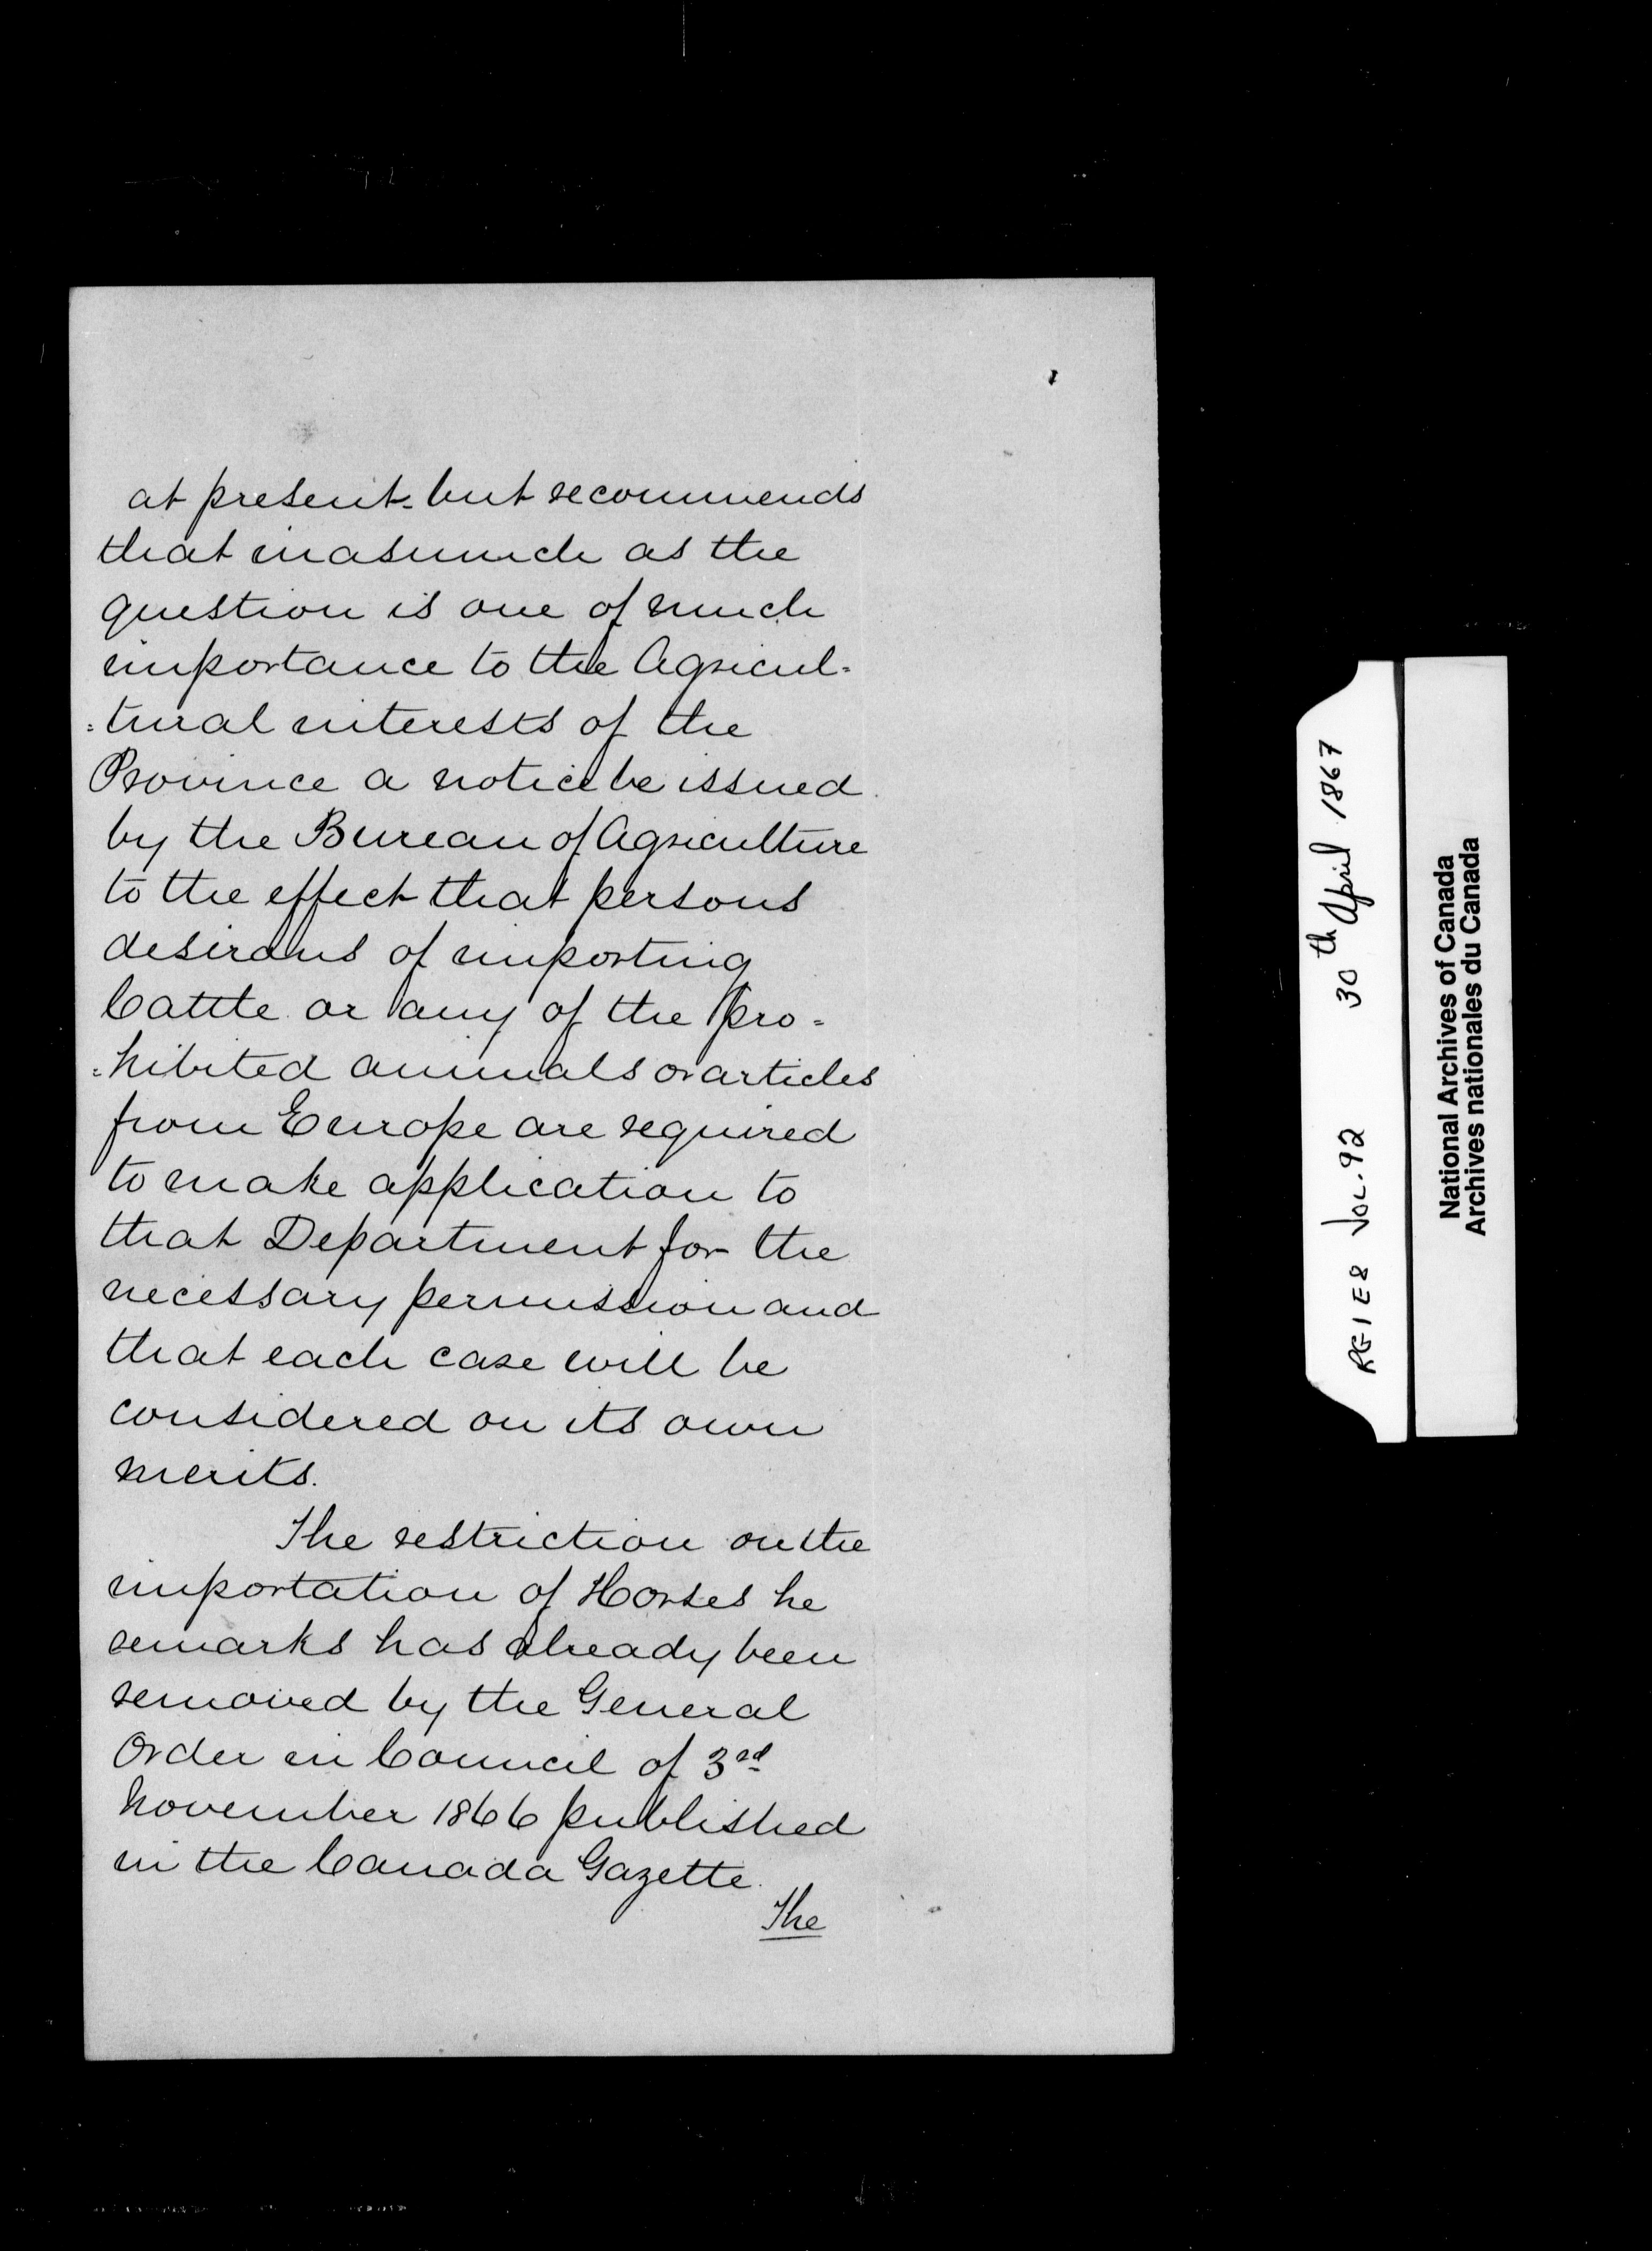 at present. but recommends
that inasmuch as the
question is one of much
importance to the Agricul=
=tural interests of the
Province a notice be issued
by the Bureau of Agriculture
to the effect that persons
desirous of importing
Cattle or any of the pro=
=hibited animals or articles
from Europe are required
to make application to
that Department for the
necessary permission and
that each case will be
considered on its own
merits.
The restriction on the
importation of Horses he
remarks has already been
removed by the General
Order in Council of 3rd
November 1866 published
in the Canada Gazette.
The
RG1E8 Vol.92 30th April 1867
National Archives of Canada
Archives nationales du Canada